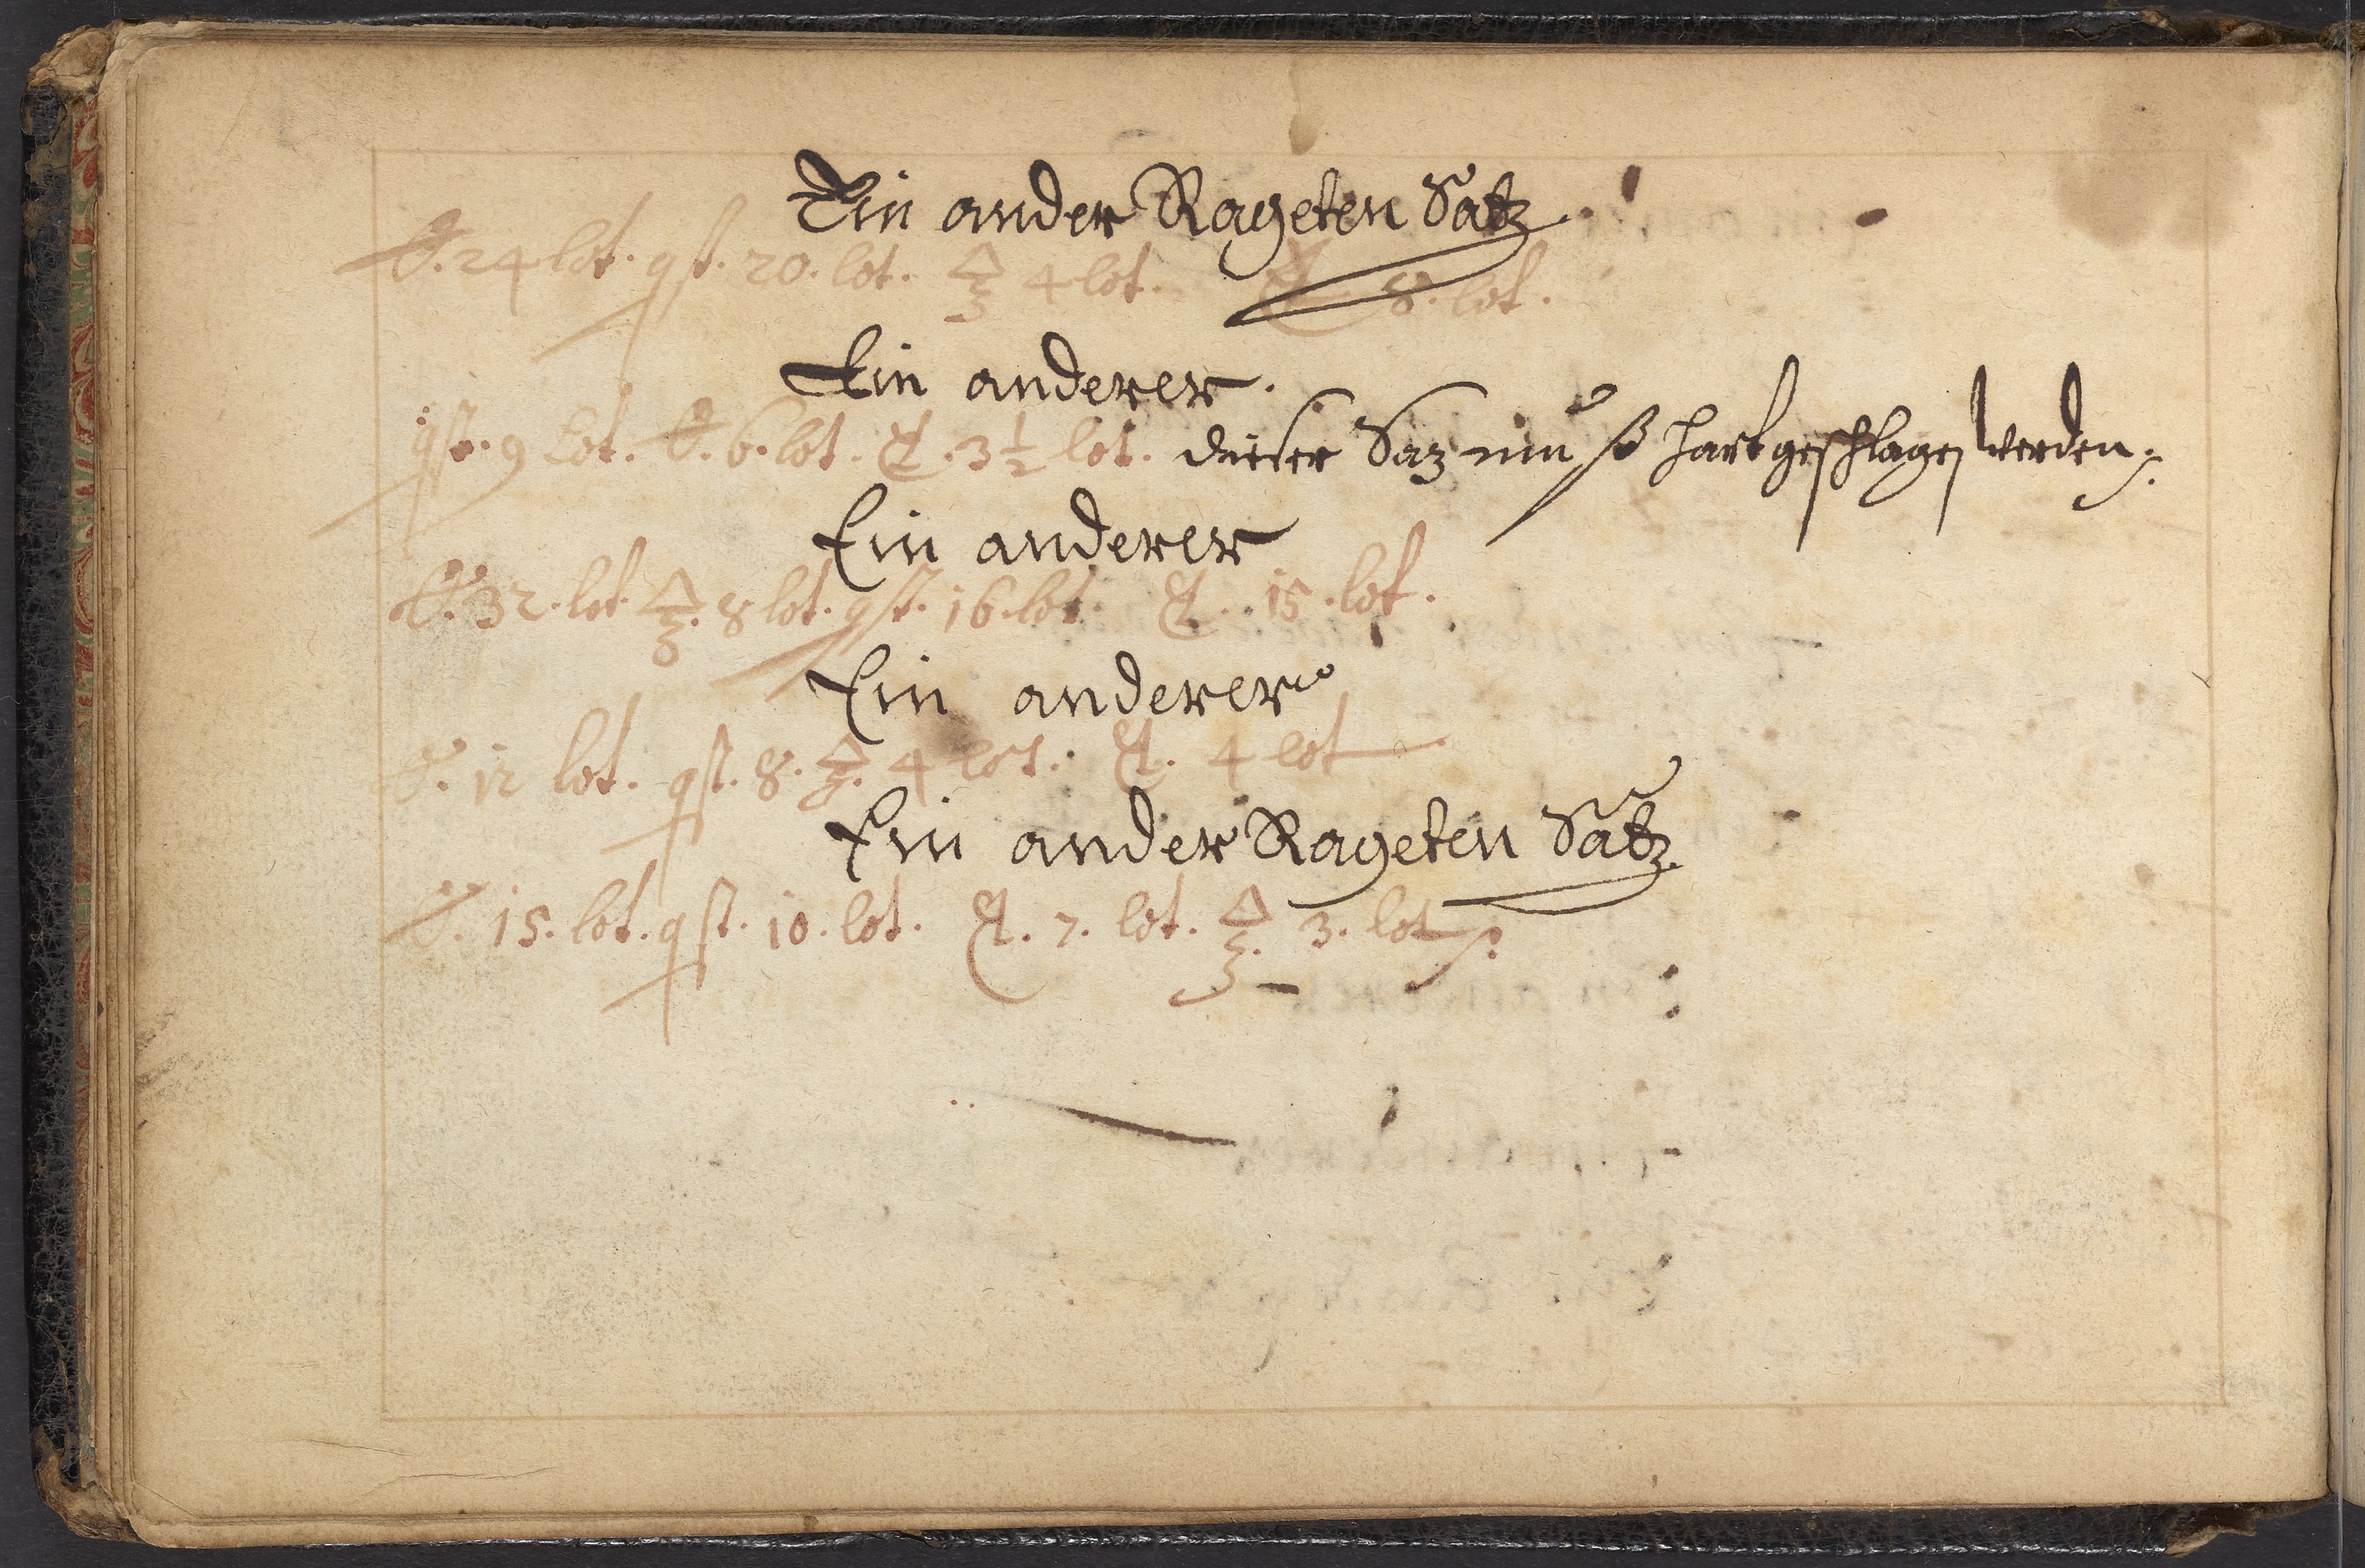 Ein ander Rageten Satz.
24 lot. gst. 20. lot. 🜍 4 lot. 8. lot.
Ein anderer.
gst. 9 lot. 6. lot. 3 1/2 lot. dieser Saz muß hart geschlagen werden.
Ein anderer
32. lot. 🜍. 8 lot. gst. 16. lot. 15. lot.
Ein anderer
12 lot. gst. 8. 🜍. 4 lot. 4 lot
Ein ander Rageten Satz.
15. lot. gst. 10. lot. 7. lot. 🜍. 3. lot